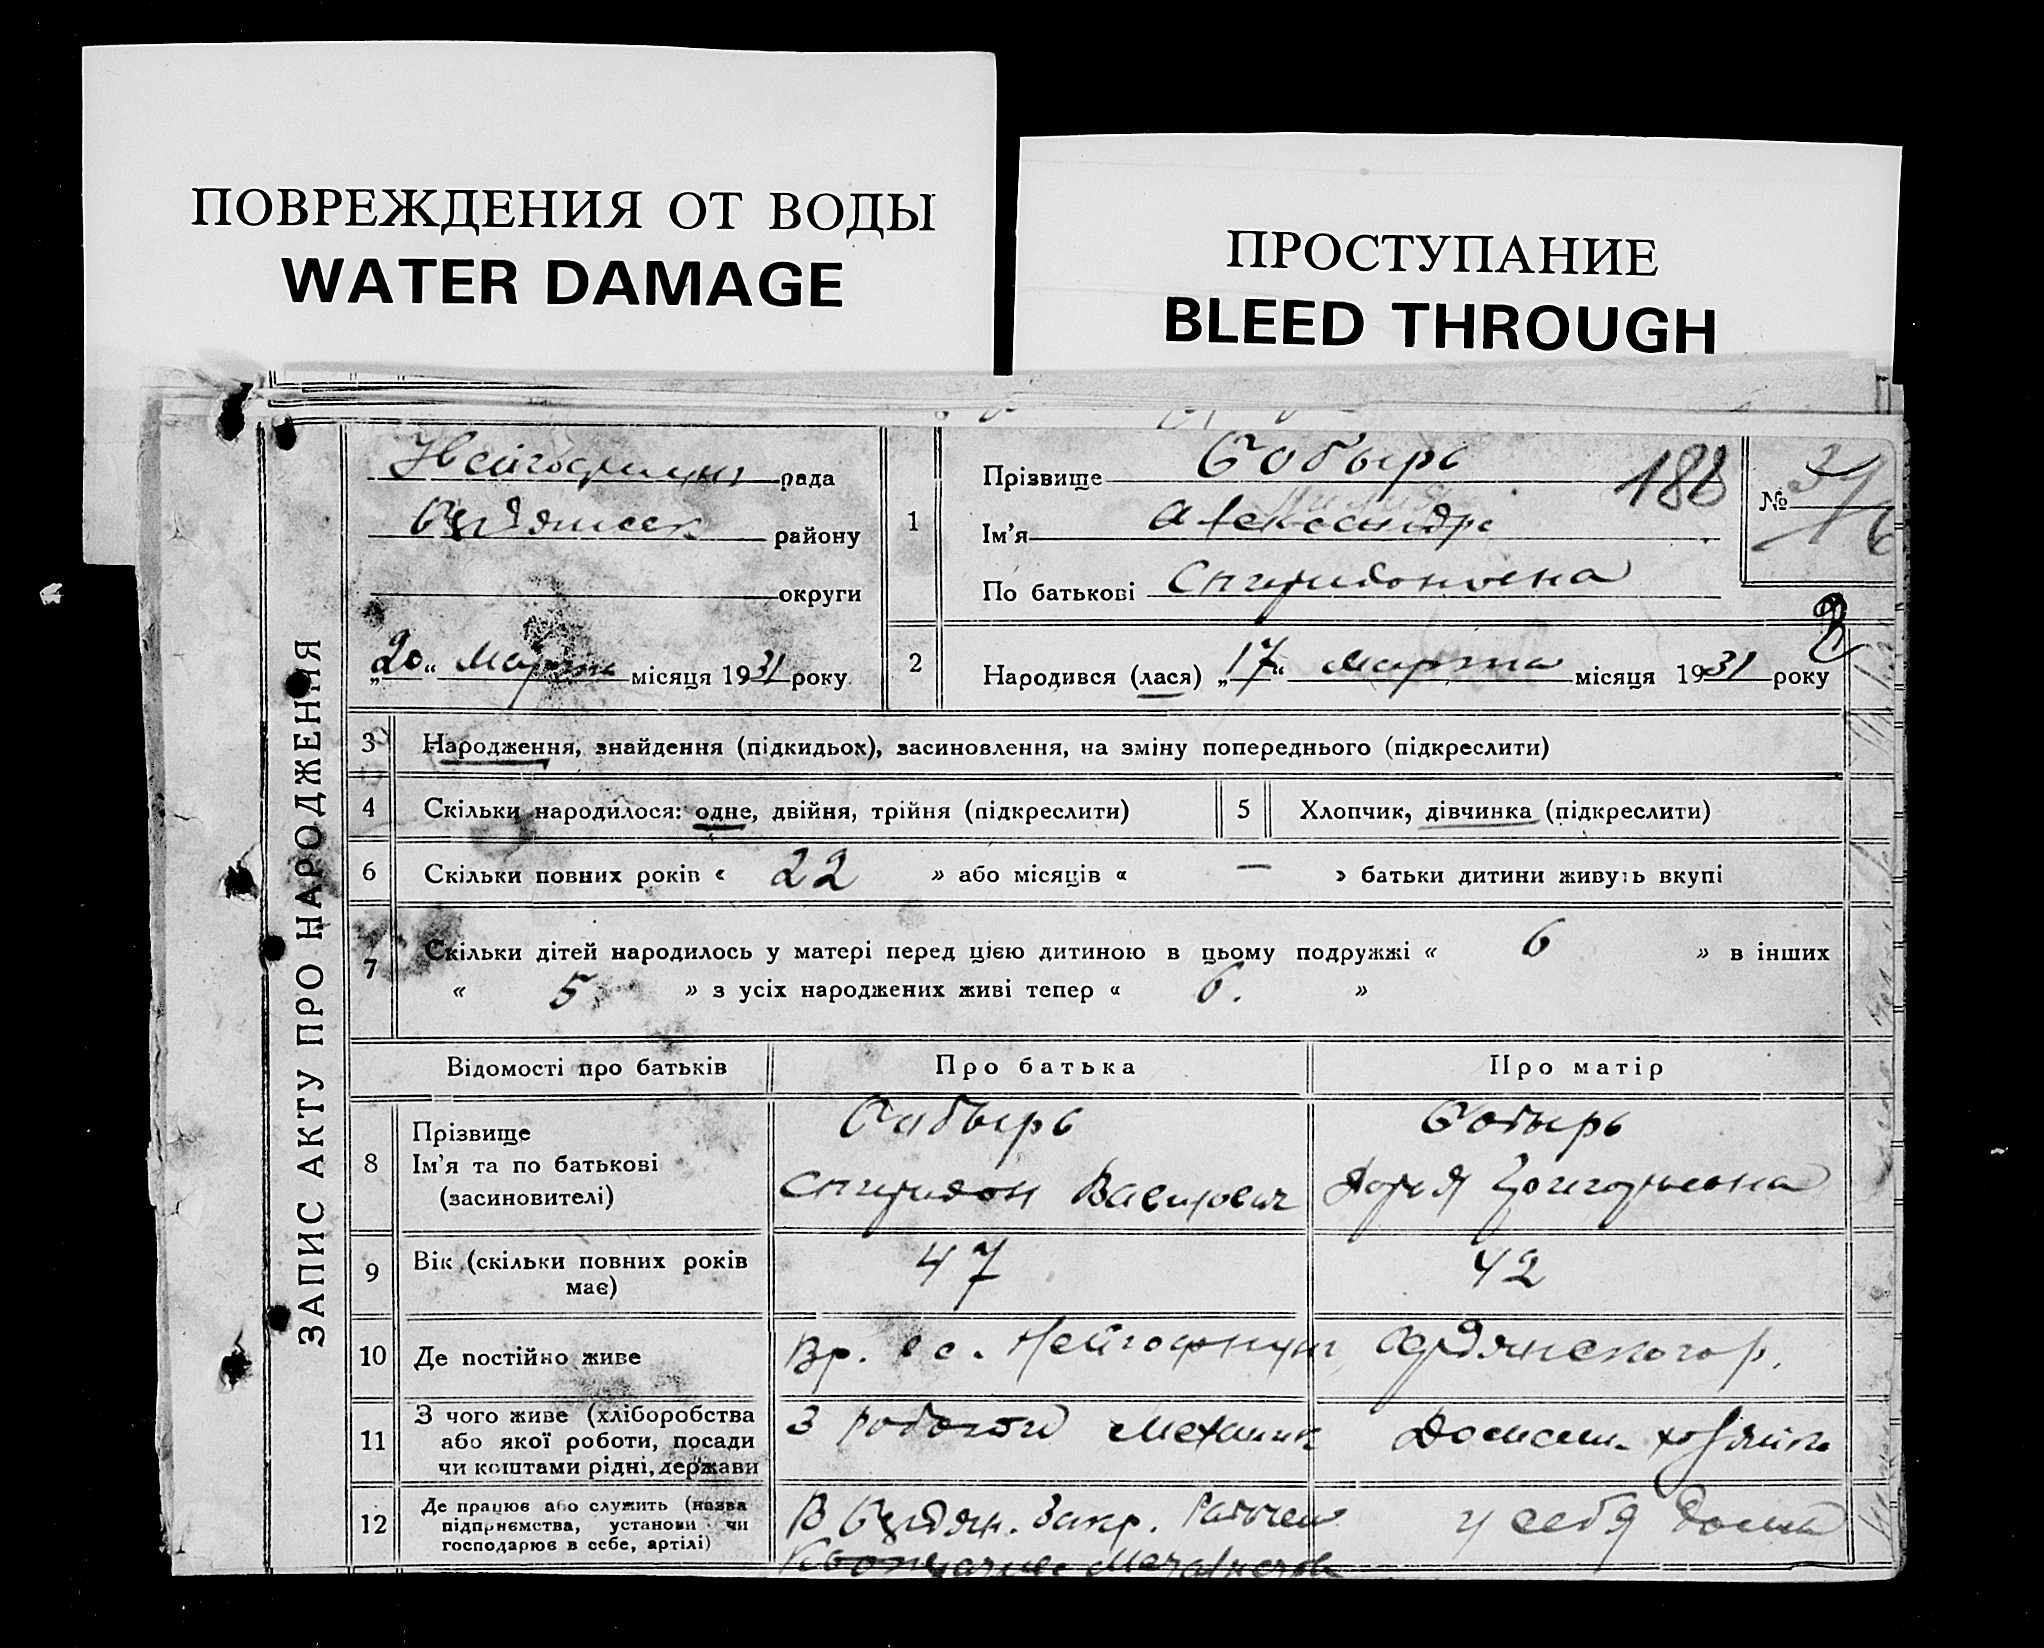 ПОВРЕЖДЕНИЯ ОТ ВОДЫ
WATER DAMAGE
ПРОСТУПАНИЕ
BLEED THROUGH
ЗАПИС АКТУ ПРО НАРОДЖЕННЯ
рада
району
округи
„20“ Марта місяця 1931 року
1
Прізвище Собырь
188
№
Ім'я Александра
По батькові Спиридоновна
2
Народився (лася) „17“ марта місяця 1931 року
3 Народження, знайдення (підкидьох), засиновлення, на зміну попереднього (підкреслити)
4 Скільки народилося: одне, двійня, трійня (підкреслити)
5 Хлопчик, дівчинка (підкреслити)
6 Скільки повних років « 22 » або місяців « — » батьки дитини живуть вкупі
7 Скільки дітей народилось у матері перед цією дитиною в цьому подружжі « 6 » в інших
« 5 » з усіх народжених живі тепер « 6. »
Відомості про батьків Про батька Про матір
8 Прізвище
Ім'я та по батькові
(засиновителі)
Собырь
Спиридон Василович
Собырь
Дарья Григорьевна
9 Вік (скільки повних років
має)
47
42
10 Де постійно живе
Вр. в с. Нейгофнунг
11 З чого живе (хліборобства
або якої роботи, посади
чи коштами рідні, держави
З роботи Механик
Домашн. хозяйка
12 Де працює або служить (назва
підприємства, установи чи
господарює в себе, артілі)
В Бердян. Закр. Рабочем
у себя дома